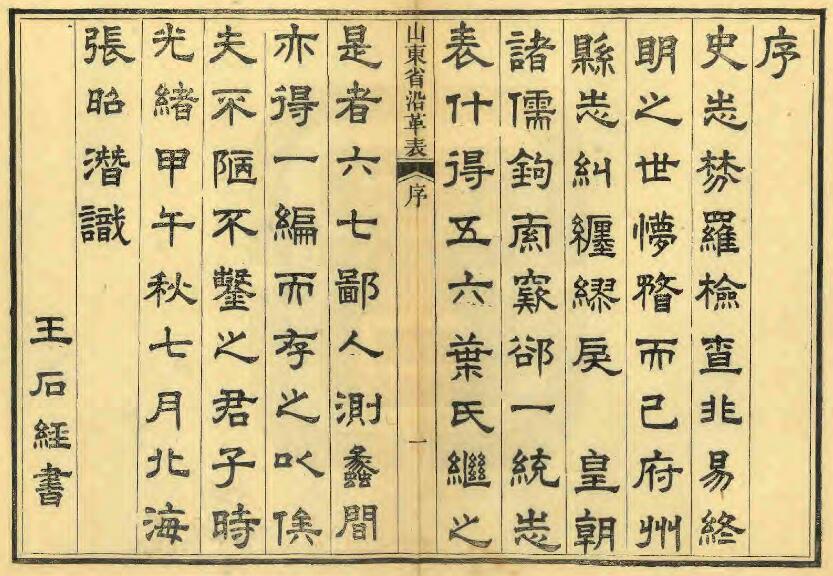 序
史志棼羅檢查非易終
明之世懜瞀而已府州
縣志糾纏繆戾 皇朝
諸儒鉤索窾郤一統志
表什得五六葉氏繼之
山東省沿革表 序 一
是者六七鄙人測蠡間
亦得一編而存之以俟
夫不陋不鑿之君子時
光緒甲午秋七月北海
張昭潛識
王石經書